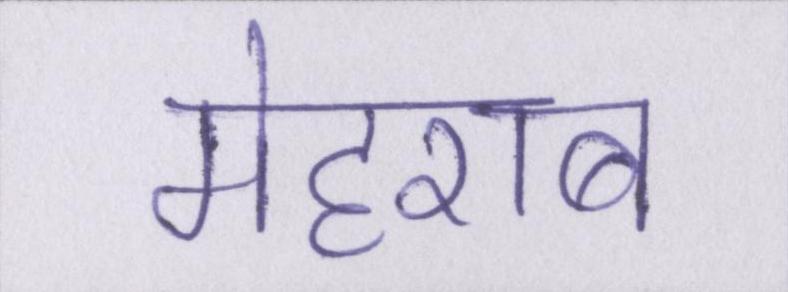 मेहराब